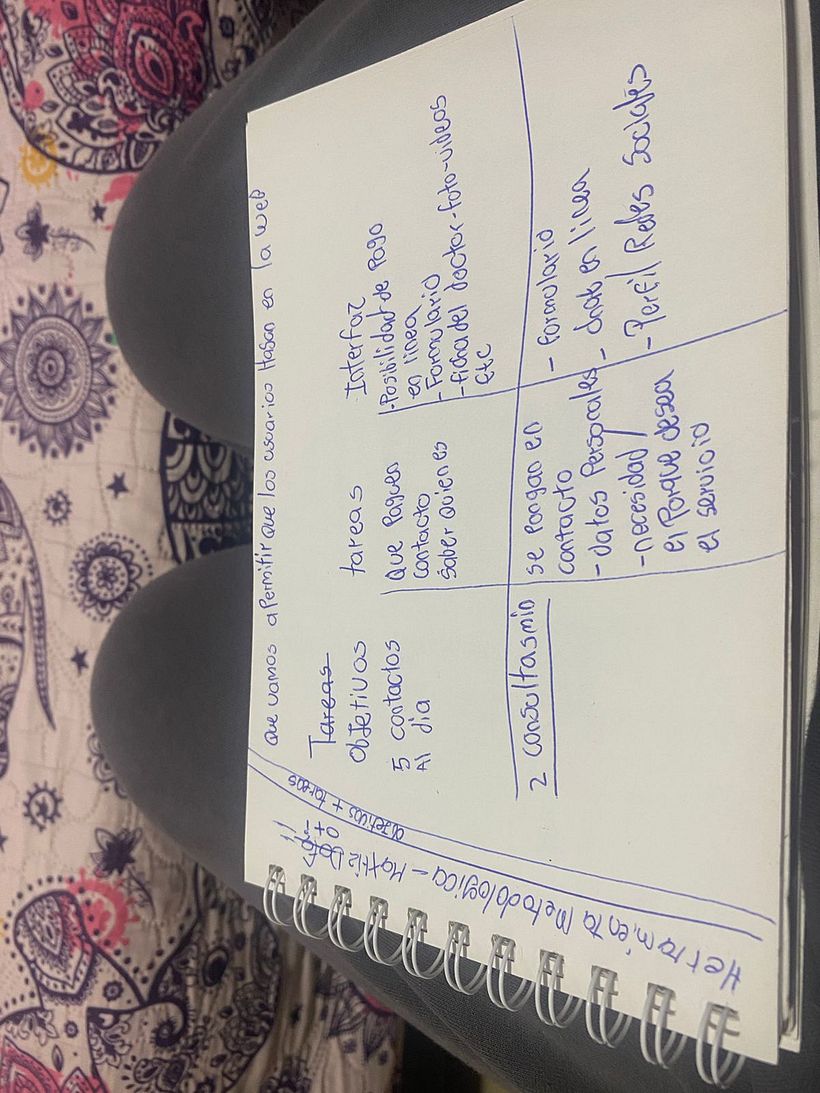 Herramienta Metodologica - Matriz
oti
objetivos + tareas
Que vamos a Permitir que los usuarios Hagan en la web
Tareas
Objetivos
5 contactos
Al dia
tareas
Que Paguen
Contacto
Saber quien es
Interfaz
- Posibilidad de Pago
en linea
- Formulario
- ficha del doctor - foto - videos
Etc
2 consultas min
se Pongan en
contacto
- datos Personales
- necesidad /
el Porque desea
el servicio
- formulario
- chat en linea
- Perfil Redes Sociales